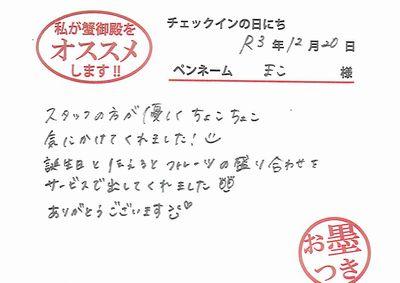 私が蟹御殿を
オススメ
します!!
チェックインの日にち
R3年12月20日
ペンネーム まこ 様
スタッフの方が優しくちょこちょこ
気にかけてくれました!
誕生日と伝えるとフルーツの盛り合わせを
サービスで出してくれました
ありがとうございます♡
お墨
つき